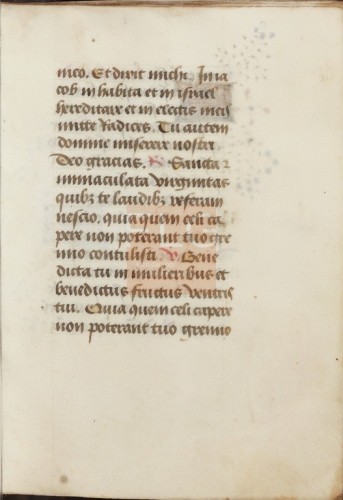 meo. Et dixit michi. In ia
cob in habita et in israel
hereditare et in electis meis
mitte radices. Tu autem
domine miserere nostri
Deo gracias. R Sancta z
immaculata virginitas
quibz te laudibz referam
nescio. quia quem celi ca
pere non poterant tuo gre
mio contulisti. V Bene
dicta tu in mulieribus et
benedictus fructus ventris
tui. Quia quem celi capere
non poterant tuo gremio